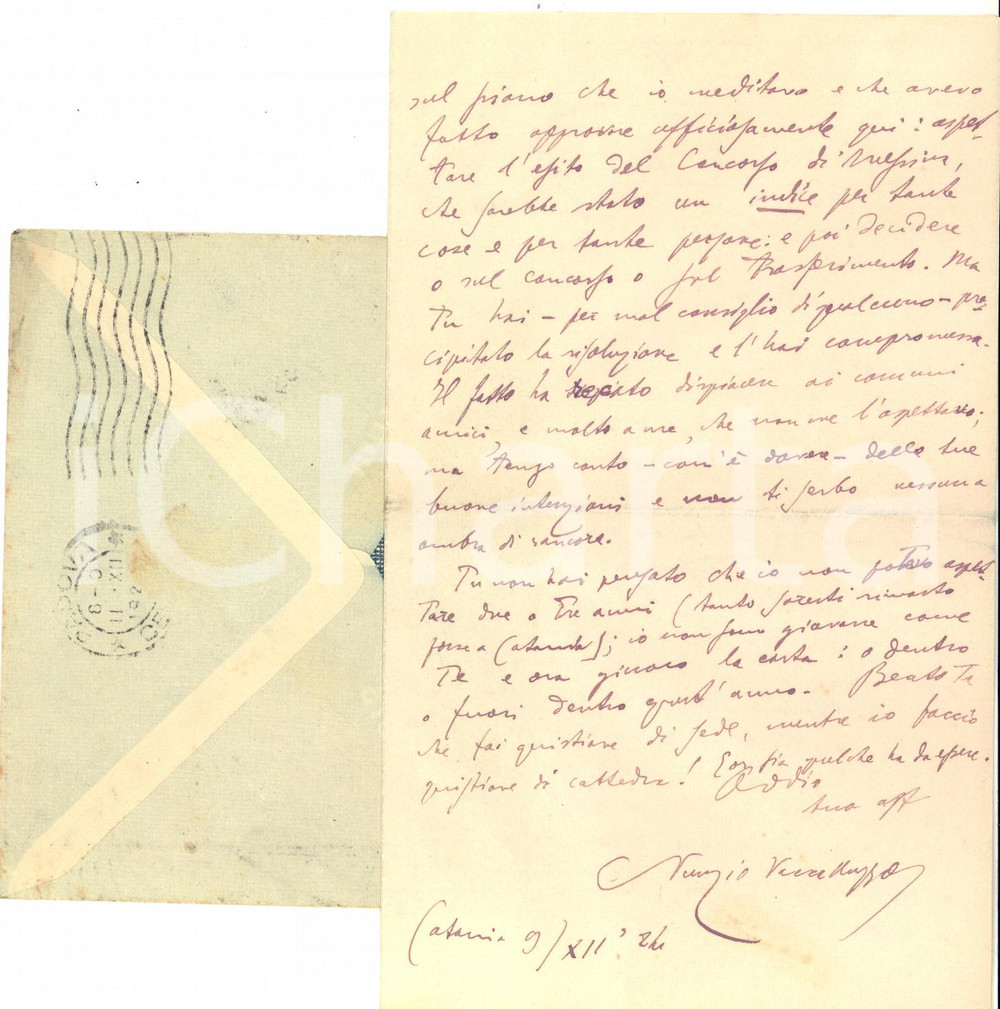 sul piano che io meditavo e che avevo
fatto approvare officiosamente qui: aspet-
tare l'esito del Concorso di Messina,
che sarebbe stato un indice per tante
cose e per tante persone: e poi decidere
o sul concorso o sul trasferimento. Ma
tu hai – per mal consiglio di qualcuno – pre-
cipitato la risoluzione e l'hai compromessa.
Il fatto ha recato dispiacere ai comuni
amici, e molto a me, che non me l'aspettavo;
ma tengo conto – com'è dovere – delle tue
buone intenzioni e non ti serbo nessuna
ombra di rancore.
Tu non hai pensato che io non potevo aspet-
tare due o tre anni (tanto saresti rimasto
forse a Catania); io non sono giovane come
Te e ora giuoco la carta: o dentro
o fuori dentro quest'anno. Beato Te
che fai quistione di sede, mentre io faccio
quistione di cattedra! E sia quel che ha da essere.
Addio
tuo aff
Nunzio Vaccalluzzo
Catania 9/XII' 24
PADOVA
8-9
11·XII
192
iCharta